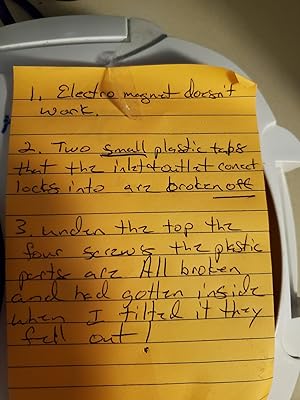 1. Electro magnet doesn't
work.
2. Two small plastic tabs
that the inlet+outlet conect
locks into are broken off
3. under the top the
four screws the plastic
parts are All broken
and had gotten inside
when I tilted it they
fell out!